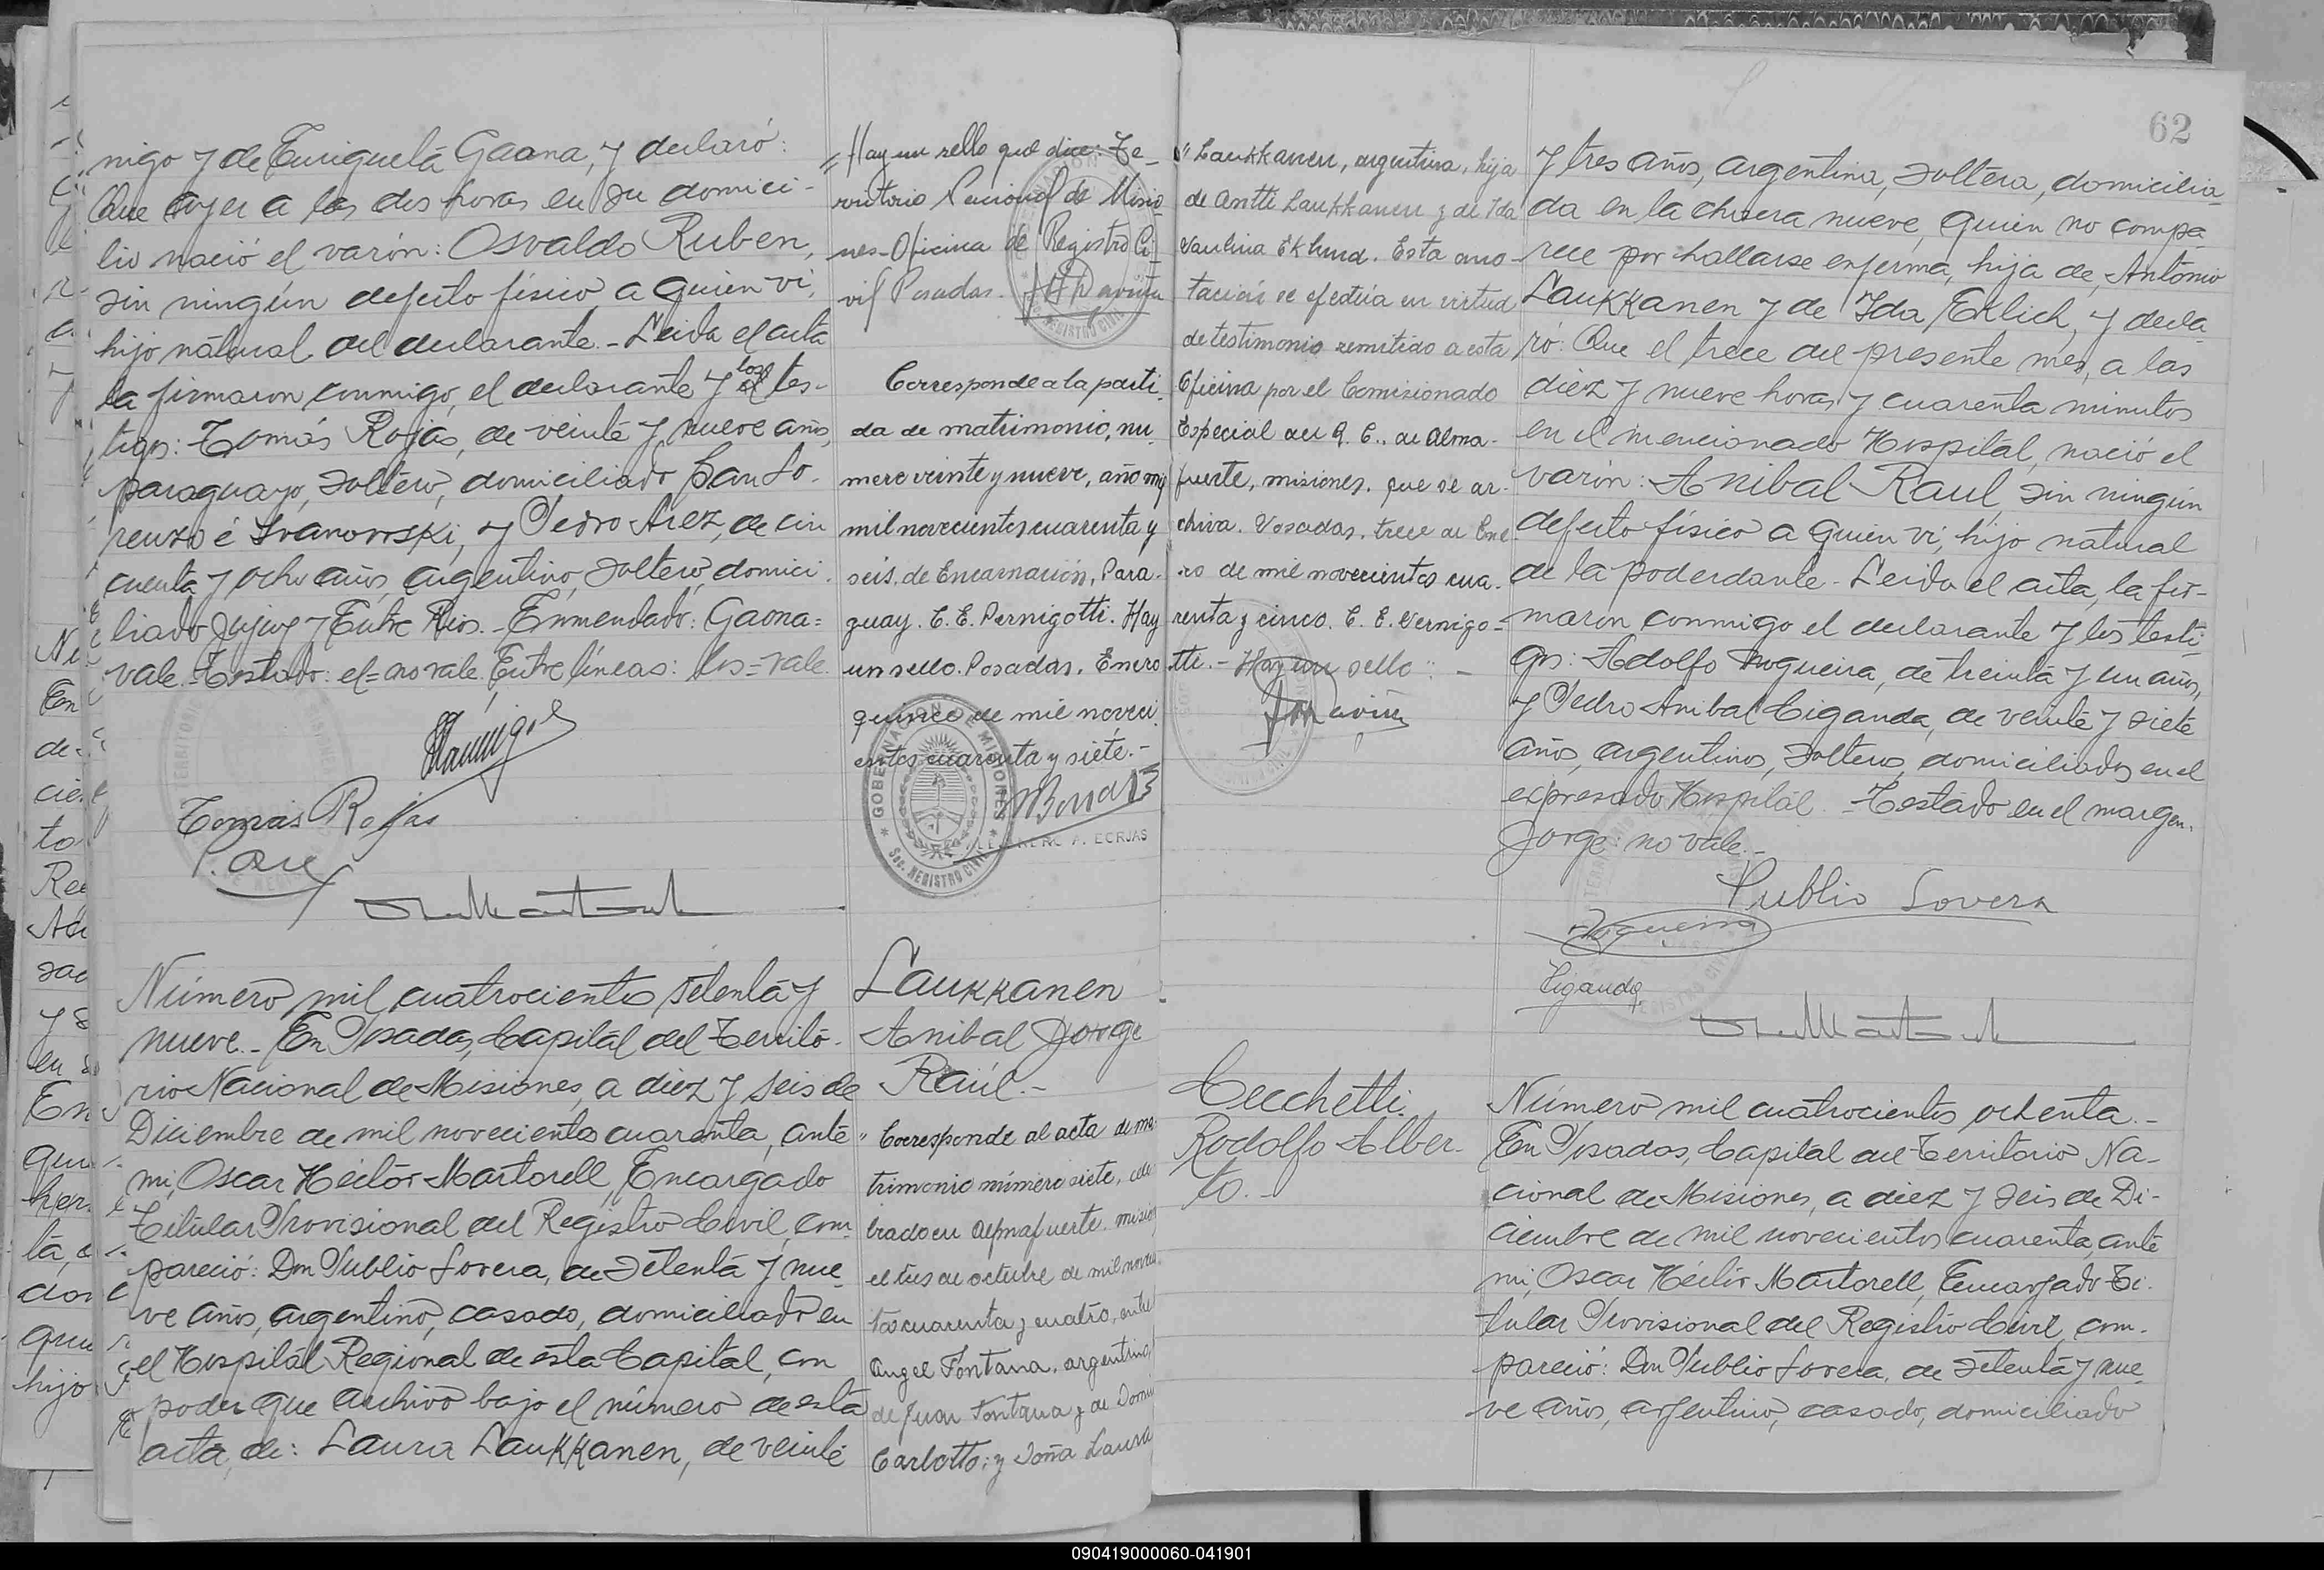 nigo y de Enriqueta Gaona, y declaró:
Que ayer a las dos horas en su domici-
lio nació el varón: Osvaldo Ruben,
sin ningún defecto físico a quien vi,
hijo natural del declarante.- Leida el acta
la firmaron conmigo, el declarante y el los tes-
tigos: Tomás Rojas, de veinte y nueve años,
paraguayo, soltero, domiciliado San Lo-
renzo é Ivanowski, y Pedro Arez, de cin
cuenta y ocho años, argentino, soltero, domici-
liado Jujuy y Entre Rios.- Enmendado: Gaona=
vale.- Testado: el=no vale. Entre líneas: los=vale.
Tomás Rojas
P. Are
Número mil cuatrocientos setenta y
nueve.- En Posadas, Capital del Territo-
rio Nacional de Misiones, a diez y seis de
Diciembre de mil novecientos cuarenta, ante
mi, Oscar Héctor Martorell, Encargado
Titular Provisional del Registro Civil, com-
pareció: Don Publio Lovera, de setenta y nue-
ve años, argentino, casado, domiciliado en
el Hospital Regional de esta Capital, con
poder que archivo bajo el número de esta
acta, de: Laura Laukkanen, de veinte
"Hay un sello que dice: Te-
rritorio Nacional de Misio-
nes-Oficina de Registro Ci-
vil Posadas.
Corresponde a la parti-
da de matrimonio, nu-
mero veinte y nueve, año mil
mil novecientos cuarenta y
seis, de Encarnación, Para-
guay. C. E. Pernigotti. Hay
un sello. Posadas, Enero
quince de mil noveci
entos cuarenta y siete.-
GOBERNACION DE MISIONES
Sec. REGISTRO CIVIL
Laukkanen
Anibal Jorge
Raúl.-
"Corresponde al acta de ma
trimonio número siete, cele
brado en Alemafuerte, mision
el tres de octubre de mil novecien
tos cuarenta y cuatro, entre
Angel Fontana, argentino
de Juan Fontana y de Domin
Carlotto; y Doña Laura
"Laukkanen, argentina, hija
de Antti Laukkanen y de Ida
Paulina Eklund. Esta ano-
tación se efectúa en virtud
de testimonio remitido a esta
Oficina por el Comisionado
Especial del R. C., de Alma-
fuerte, misiones, que se ar-
chiva. Posadas, trece de Ene
ro de mil novecientos cua-
renta y cinco. C. E. Pernigo-
tti.- Hay un sello".-
Cecchetti
Rodolfo Alber-
to.-
62
y tres años, argentina, soltera, domicilia-
da en la chacra nueve, quien no compa-
rece por hallarse enferma, hija de, Antonio
Laukkanen y de Ida Erlich, y decla-
ró: Que el trece del presente mes, a las
diez y nueve horas y cuarenta minutos
en el mencionado Hospital, nació el
varón: Anibal Raul, sin ningún
defecto físico a quien vi, hijo natural
de la poderdante.- Leida el acta, la fir-
maron conmigo el declarante y los testi-
gos: Adolfo Nogueira, de treinta y un años,
y Pedro Anibal Ciganda, de veinte y siete
años, argentinos, solteros, domiciliados en el
expresado Hospital.- Testado en el margen:
Jorge: no vale.-
Publio Lovera
Nogueira
Ciganda
Número mil cuatrocientos ochenta.-
En Posadas, Capital del Territorio Na-
cional de Misiones, a diez y seis de Di-
ciembre de mil novecientos cuarenta, ante
mi, Oscar Héctor Martorell, Encargado Ti-
tular Provisional del Registro Civil, com-
pareció: Don Publio Lovera, de setenta y nue-
ve años, argentino, casado, domiciliado
090419000060-041901